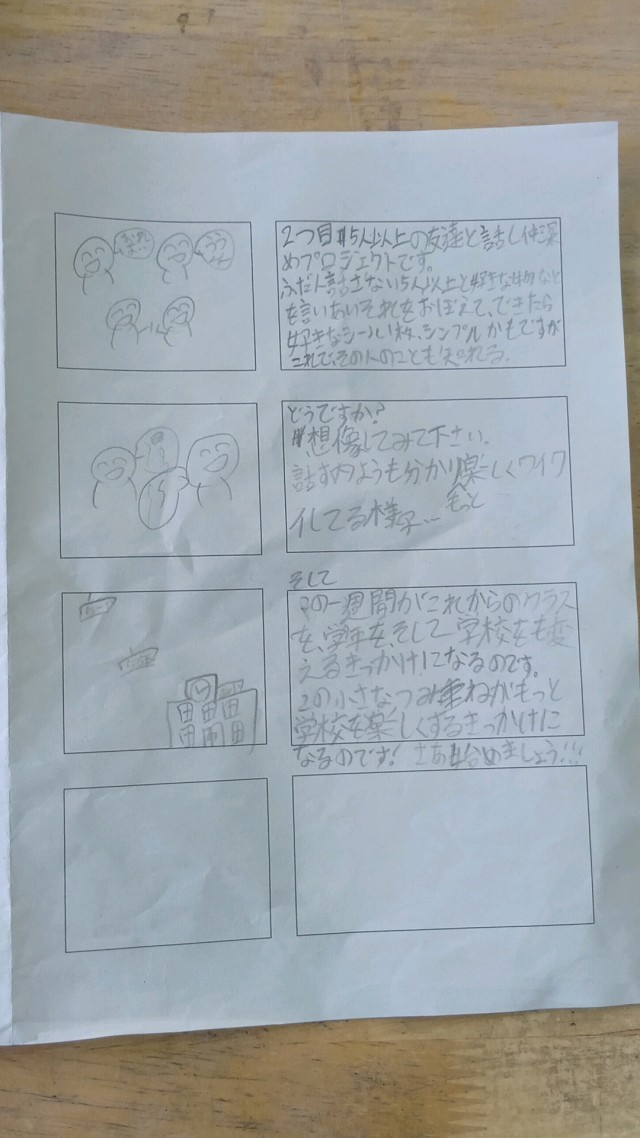 2つ目は5人以上の友達と話し仲深
めプロジェクトです。
ふだん話さない5人以上と好きな物など
を言いあいそれをおぼえて、できたら
好きなシール1枚、シンプルかもですが
これで、その人のことも知れる。
どうですか?
想像してみて下さい。
話す内ようも分かり楽しくワイワ
もっと
イしてる様子…
そして
この一週間がこれからのクラス
を、学年を、そして学校をも変
えるきっかけになるのです。
この小さなつみ重ねがもっと
学校を楽しくするきっかけに
なるのです! さあ始めましょう!!!